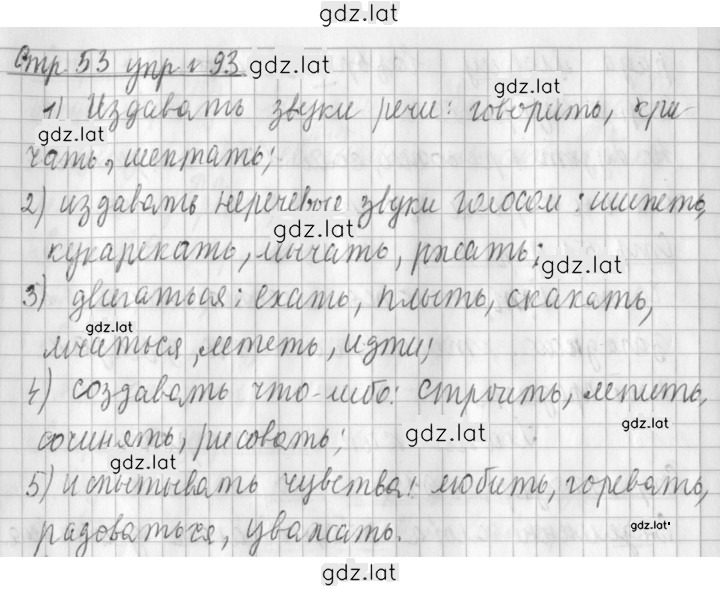 gdz.lat
Стр 53 упр. 93 gdz.lat
gdz.lat
1) Издавать звуки речи: говорить, кри-
gdz.lat
чать, шептать;
2) издавать неречевые звуки голосом: шипеть,
gdz.lat
кукарекать, мычать, ржать;
gdz.lat
3) двигаться: ехать, плыть, скакать,
gdz.lat
мчаться, лететь, идти;
4) создавать что-либо: строить, лепить,
gdz.lat
сочинять, рисовать; gdz.lat
gdz.lat
5) испытывать чувства: любить, горевать,
gdz.lat
радоваться, уважать.
gdz.lat